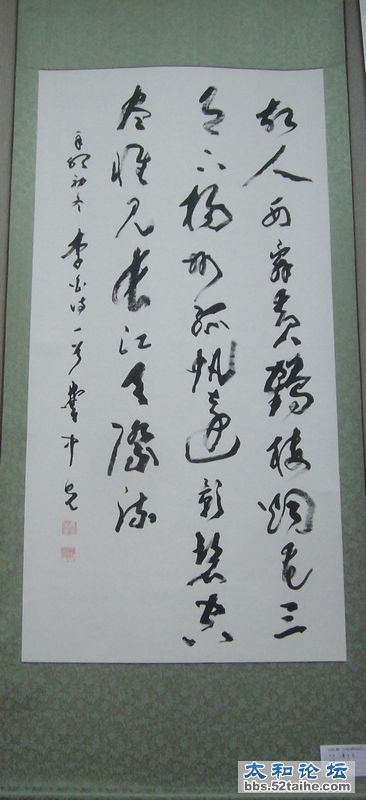 故人西辞黄鶴楼烟花三
月下揚州孤帆遠影碧空
尽惟见长江天際流
初冬李白诗一首
太和论坛
bbs.52taihe.com